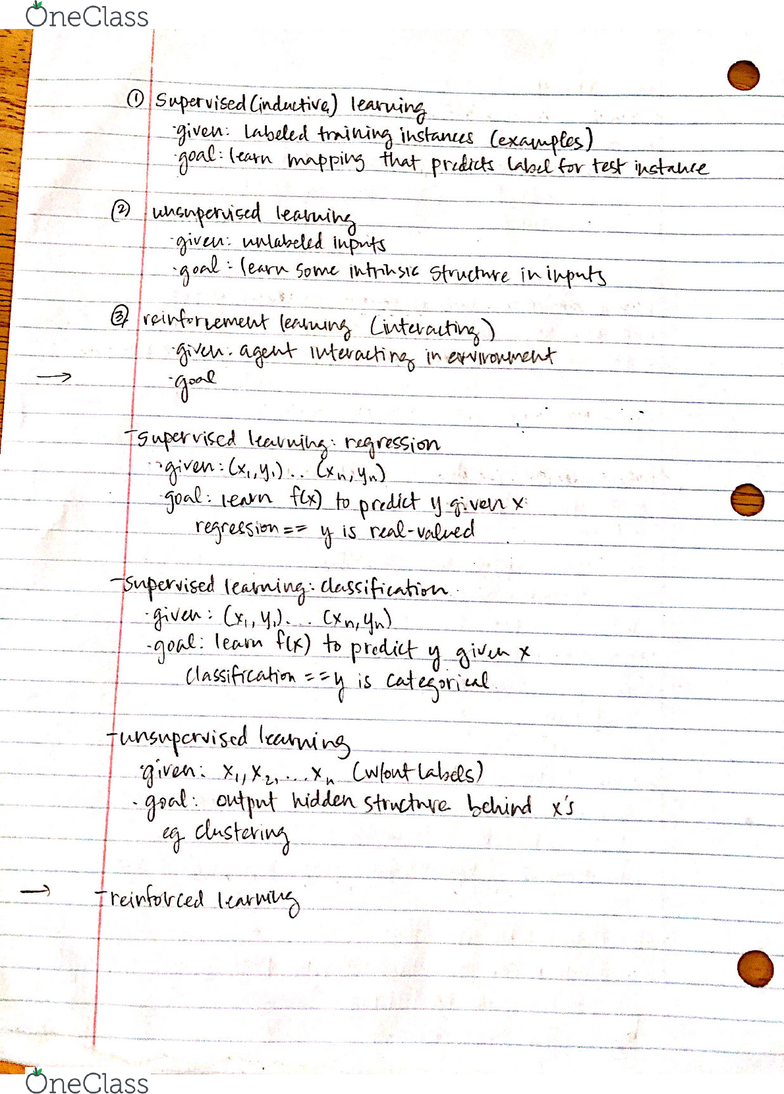 OneClass
① Supervised (inductive) learning
·given: labeled training instances (examples)
·goal: learn mapping that predicts label for test instance
② unsupervised learning
·given: unlabeled inputs
·goal: learn some intrinsic structure in inputs
③ reinforcement learning (interacting)
·given: agent interacting in environment
→ ·goal
-supervised learning: regression
·given: (x₁,y₁)... (xₙ,yₙ)
·goal: learn f(x) to predict y given x
regression == y is real-valued
-supervised learning: classification
·given: (x₁,y₁)... (xₙ,yₙ)
·goal: learn f(x) to predict y given x
classification == y is categorical
-unsupervised learning
·given: x₁, x₂, ... xₙ (w/out labels)
·goal: output hidden structure behind x's
eg clustering
→ -reinforced learning
OneClass